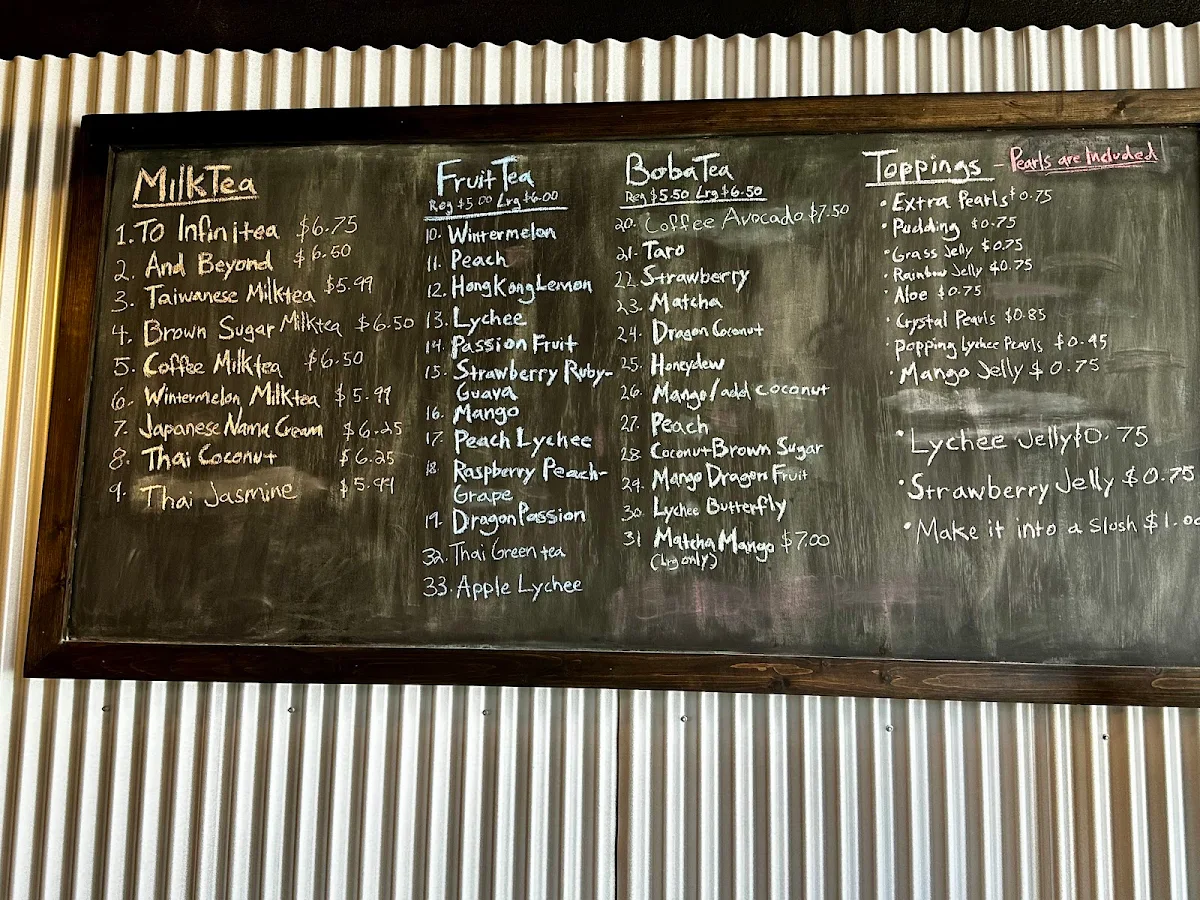 MilkTea
1. To Infinitea $6.75
2. And Beyond $6.50
3. Taiwanese Milktea $5.99
4. Brown Sugar Milktea $6.50
5. Coffee Milktea $6.50
6. Wintermelon Milktea $5.99
7. Japanese Nama Cream $6.25
8. Thai Coconut $6.25
9. Thai Jasmine $5.99
Fruit Tea
Reg $5.00 Lrg $6.00
10. Wintermelon
11. Peach
12. Hong Kong Lemon
13. Lychee
14. Passion Fruit
15. Strawberry Ruby-
Guava
16. Mango
17. Peach Lychee
18. Raspberry Peach-
Grape
19. Dragon Passion
32. Thai Green tea
33. Apple Lychee
Boba Tea
Reg $5.50 Lrg $6.50
20. Coffee Avocado $7.50
21. Taro
22. Strawberry
23. Matcha
24. Dragon Coconut
25. Honeydew
26. Mango/add coconut
27. Peach
28. Coconut Brown Sugar
29. Mango Dragon Fruit
30. Lychee Butterfly
31 Matcha Mango $7.00
(Lrg only)
Toppings - Pearls are Included
• Extra Pearls $0.75
• Pudding $0.75
• Grass Jelly $0.75
• Rainbow Jelly $0.75
• Aloe $0.75
• Crystal Pearls $0.85
• Popping Lychee Pearls $0.95
• Mango Jelly $0.75
• Lychee Jelly $0.75
• Strawberry Jelly $0.75
• Make it into a Slush $1.00